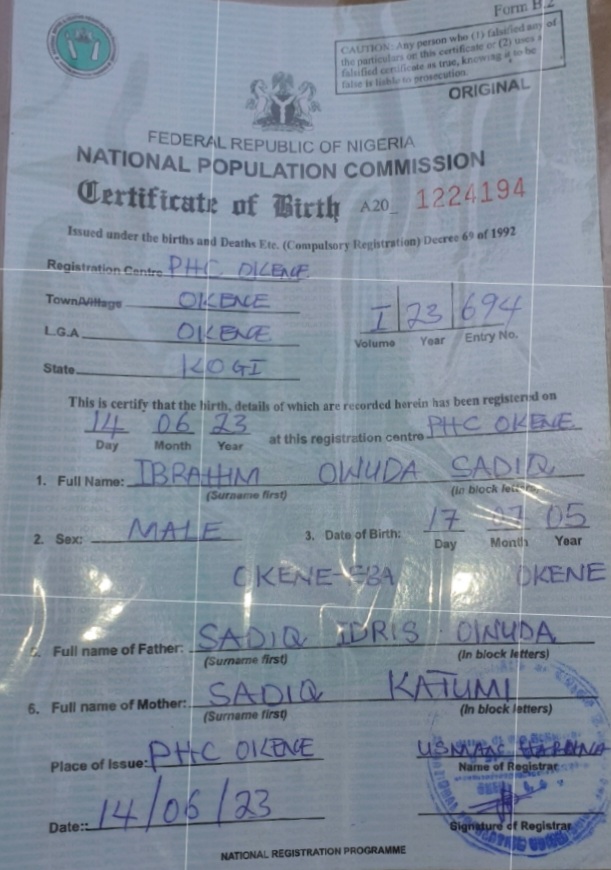 Form B.2
CAUTION: Any person who (1) falsified any of
the particulars on this certificate or (2) uses a
falsified certificate as true, knowing it to be
false is liable to prosecution.
ORIGINAL
FEDERAL REPUBLIC OF NIGERIA
NATIONAL POPULATION COMMISSION
Certificate of Birth A20_ 1224194
Issued under the births and Deaths Etc. (Compulsory Registration) Decree 69 of 1992
Registration Centre PHC OKENE
Town/Village OKENE
L.G.A OKENE
I 23 694
Volume Year Entry No.
State KOGI
This is certify that the birth, details of which are recorded herein has been registered on
14 06 23 at this registration centre PHC OKENE
Day Month Year
1. Full Name: IBRAHIM OWUDA SADIQ
(Surname first) (In block letters)
2. Sex: MALE 3. Date of Birth: 17 07 05
Day Month Year
OKENE-EBA OKENE
5. Full name of Father: SADIQ IDRIS OINUDA
(Surname first) (In block letters)
6. Full name of Mother: SADIQ KATUMI
(Surname first) (In block letters)
Place of Issue: PHC OKENE
Name of Registrar
Date:: 14/06/23
Signature of Registrar
NATIONAL REGISTRATION PROGRAMME